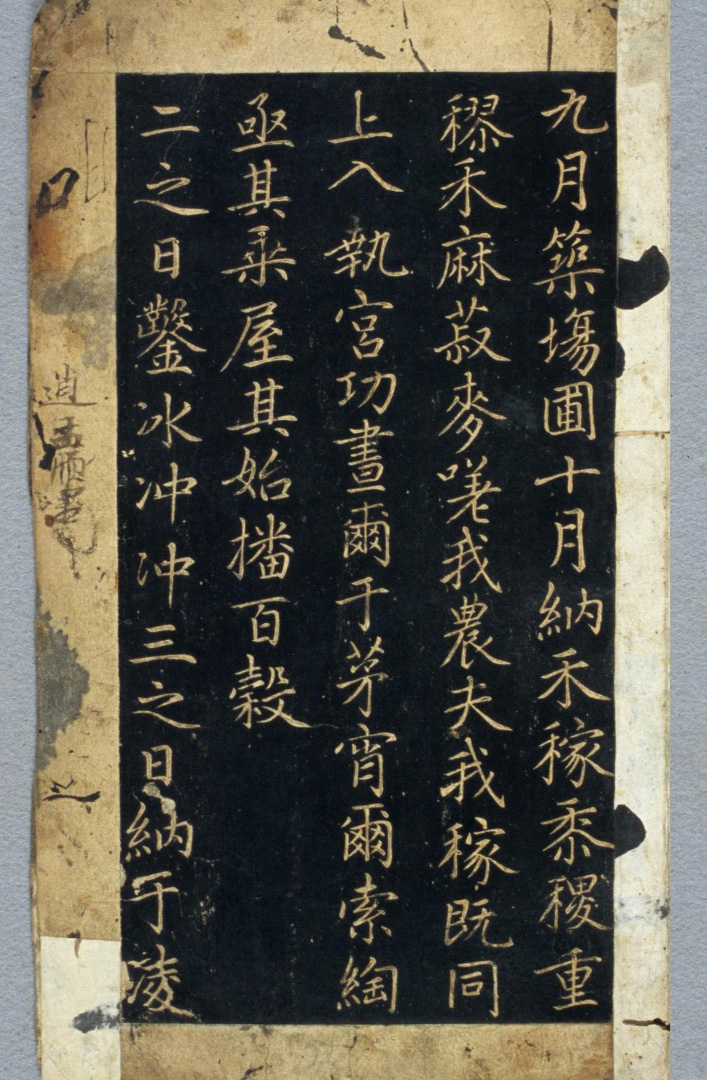 九月築塲圃十月納禾稼黍稷重
穋禾麻菽麥嗟我農夫我稼既同
上入執宮功晝爾于茅宵爾索綯
亟其乘屋其始播百穀
二之日鑿冰冲冲三之日納于陵